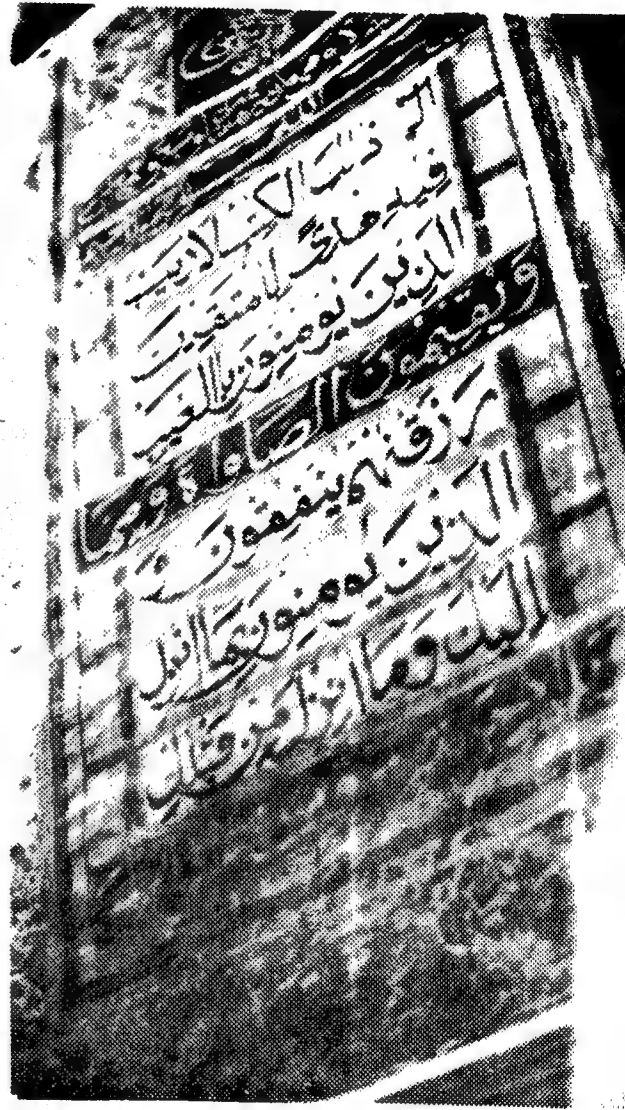 الم ذلك الكتب لا ريب
فيه هدى للمتقين
الذين يؤمنون بالغيب
ويقيمون الصلوة ومما
رزقنهم ينفقون و
الذين يؤمنون بما انزل
اليك وما انزل من قبلك